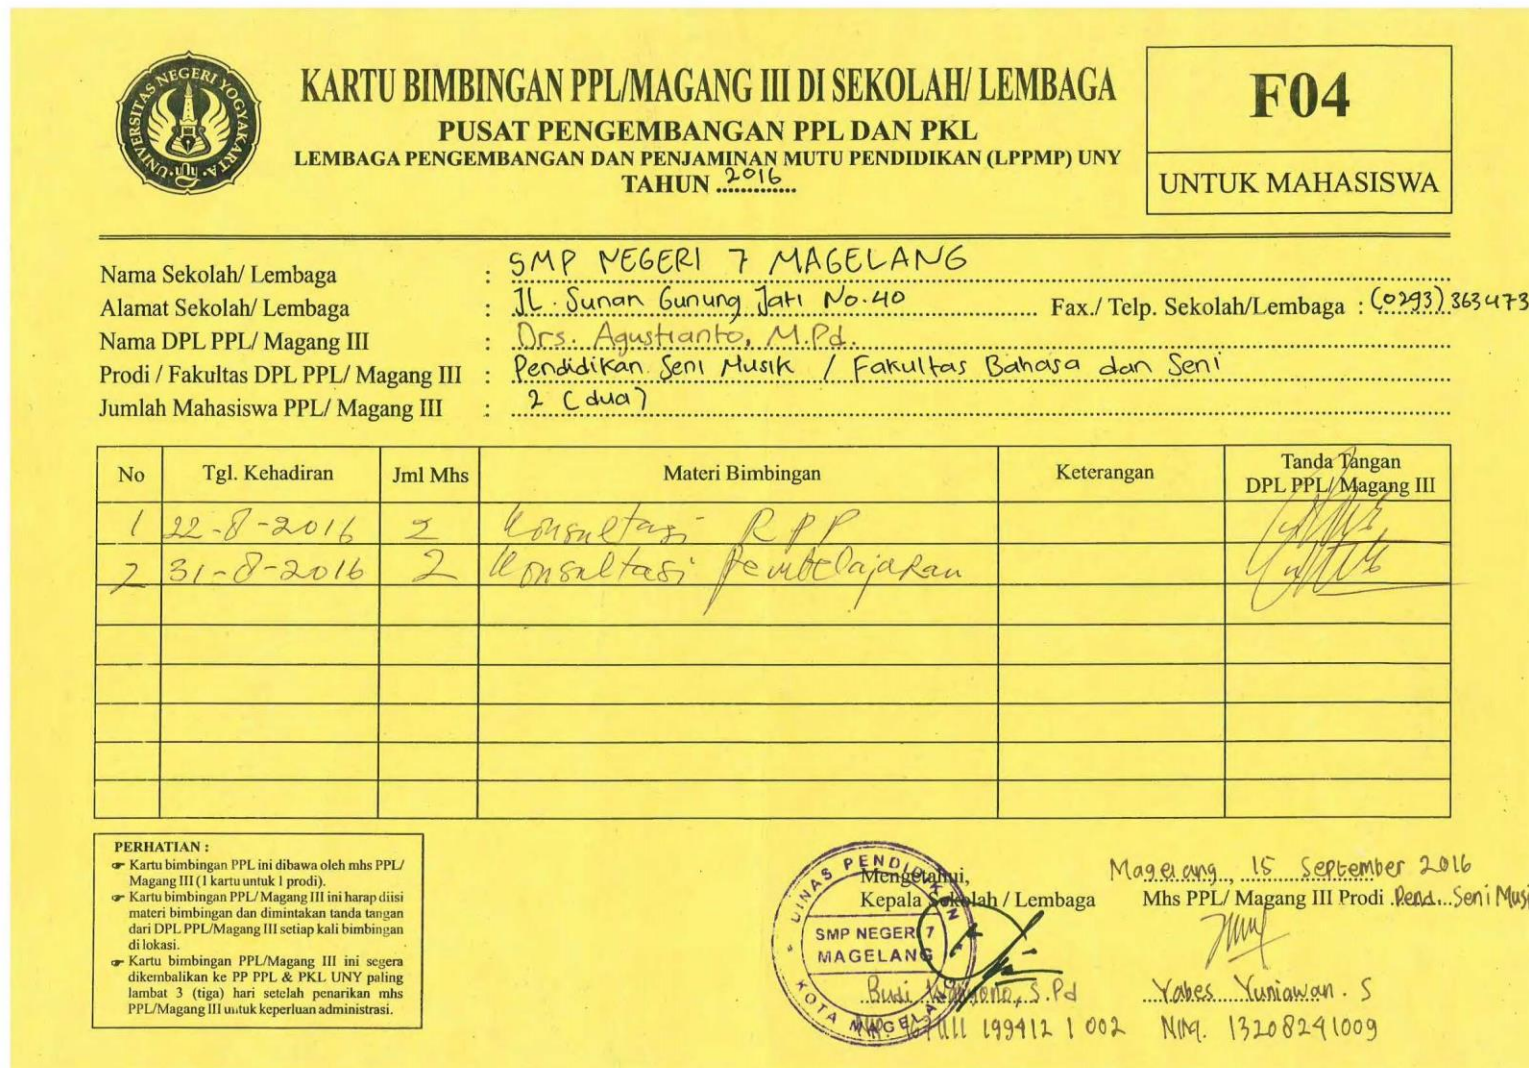 UNIVERSITAS NEGERI YOGYAKARTA
UNY
KARTU BIMBINGAN PPL/MAGANG III DI SEKOLAH/ LEMBAGA
PUSAT PENGEMBANGAN PPL DAN PKL
LEMBAGA PENGEMBANGAN DAN PENJAMINAN MUTU PENDIDIKAN (LPPMP) UNY
TAHUN 2016
F04
UNTUK MAHASISWA
Nama Sekolah/ Lembaga : SMP NEGERI 7 MAGELANG
Alamat Sekolah/ Lembaga : JL. Sunan Gunung Jati No.40 Fax./ Telp. Sekolah/Lembaga : (0293) 363473
Nama DPL PPL/ Magang III : Drs. Agustianto, M.Pd.
Prodi / Fakultas DPL PPL/ Magang III : Pendidikan Seni Musik / Fakultas Bahasa dan Seni
Jumlah Mahasiswa PPL/ Magang III : 2 (dua)
No Tgl. Kehadiran Jml Mhs Materi Bimbingan Keterangan Tanda Tangan DPL PPL/ Magang III
1 22-8-2016 2 Konsultasi RPP
2 31-8-2016 2 Konsultasi Pembelajaran
PERHATIAN :
Kartu bimbingan PPL ini dibawa oleh mhs PPL/
Magang III (1 kartu untuk 1 prodi).
Kartu bimbingan PPL/Magang III ini harap diisi
materi bimbingan dan dimintakan tanda tangan
dari DPL PPL/Magang III setiap kali bimbingan
di lokasi.
Kartu bimbingan PPL/Magang III ini segera
dikembalikan ke PP PPL & PKL UNY paling
lambat 3 (tiga) hari setelah penarikan mhs
PPL/Magang III untuk keperluan administrasi.
Mengetahui,
Kepala Sekolah / Lembaga
DINAS PENDIDIKAN
SMP NEGERI 7
MAGELANG
KOTA MAGELANG
Budi S.Pd
199412 1 002
Magelang, 15 September 2016
Mhs PPL/ Magang III Prodi Pend. Seni Musi
Yabes Yuniawan. S
NIM. 13208241009